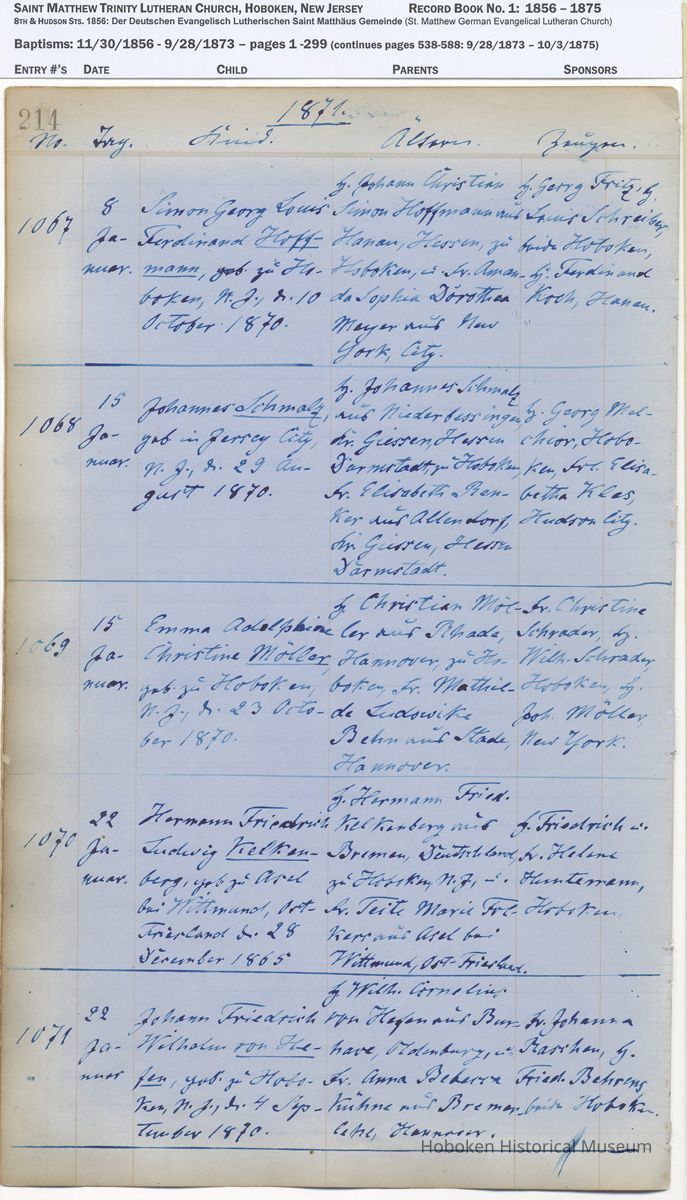 SAINT MATTHEW TRINITY LUTHERAN CHURCH, HOBOKEN, NEW JERSEY RECORD BOOK NO. 1: 1856 – 1875
8TH & HUDSON STS. 1856: Der Deutschen Evangelisch Lutherischen Saint Matthäus Gemeinde (St. Matthew German Evangelical Lutheran Church)
Baptisms: 11/30/1856 - 9/28/1873 – pages 1 -299 (continues pages 538-588: 9/28/1873 – 10/3/1875)
ENTRY #'S DATE CHILD PARENTS SPONSORS
214
1871.
No. Tag. Kind. Ältern. Zeugen.
1067
8
Ja-
nuar.
Simon Georg Louis
Ferdinand Hoff-
mann, geb. zu Ho-
boken, N. J., d. 10
October 1870.
H. Johann Christian
Simon Hoffmann aus
Hanau, Hessen, zu
Hoboken, u. Fr. Aman-
da Sophia Dorothea
Meyer aus New
York, City.
H. Georg Fritz, H.
Louis Schreiber,
beide Hoboken,
H. Ferdinand
Koch, Hanau.
1068
15
Ja-
nuar.
Johannes Schmalz,
geb in Jersey City,
N. J., d. 29 Au-
gust 1870.
H. Johannes Schmalz
aus Niederbessingen
Kr. Giessen, Hessen
Darmstadt, zu Hoboken,
Fr. Elisabeth Ran-
ker aus Allendorf,
Kr. Giessen, Hessen
Darmstadt.
H. Georg Mel-
chior, Hobo-
ken, Frl. Elisa-
betha Klee,
Hudson City.
1069
15
Ja-
nuar.
Emma Adolphine
Christine Möller,
geb. zu Hoboken,
N. J., d. 23 Octo-
ber 1870.
H. Christian Möl-
ler aus Rhade,
Hannover, zu Ho-
boken, Fr. Mathil-
de Ludowike
Behn aus Stade,
Hannover.
Fr. Christine
Schrader, H.
Wilh. Schrader,
Hoboken, H.
Joh. Möller,
New York.
1070
22
Ja-
nuar.
Hermann Friedrich
Ludwig Kelken-
berg, geb zu Asel
bei Wittmund, Ost-
Friesland d. 28
December 1865
H. Hermann Fried.
Kelkenberg aus
Bremen, Deutschland,
zu Hoboken, N. J., u.
Fr. Teite Marie Fol-
kers aus Asel bei
Wittmund, Ost-Friesland.
H. Friedrich u.
Fr. Helene
Huntemann,
Hoboken.
1071
22
Ja-
nuar
Johann Friedrich
Wilhelm von He-
fen, geb. zu Hobo-
ken, N. J., d. 4 Sep-
tember 1870.
H. Wilh. Cornelius
von Hefen aus Bur-
have, Oldenburg, u.
Fr. Anna Rebecca
Kühne aus Bremen
lehe, Hannover.
Fr. Johanna
Raschen, H.
Fried. Behrens
beide Hoboken.
Hoboken Historical Museum